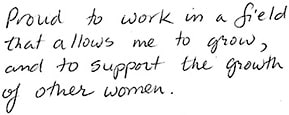 Proud to work in a field
that allows me to grow,
and to support the growth
of other women.